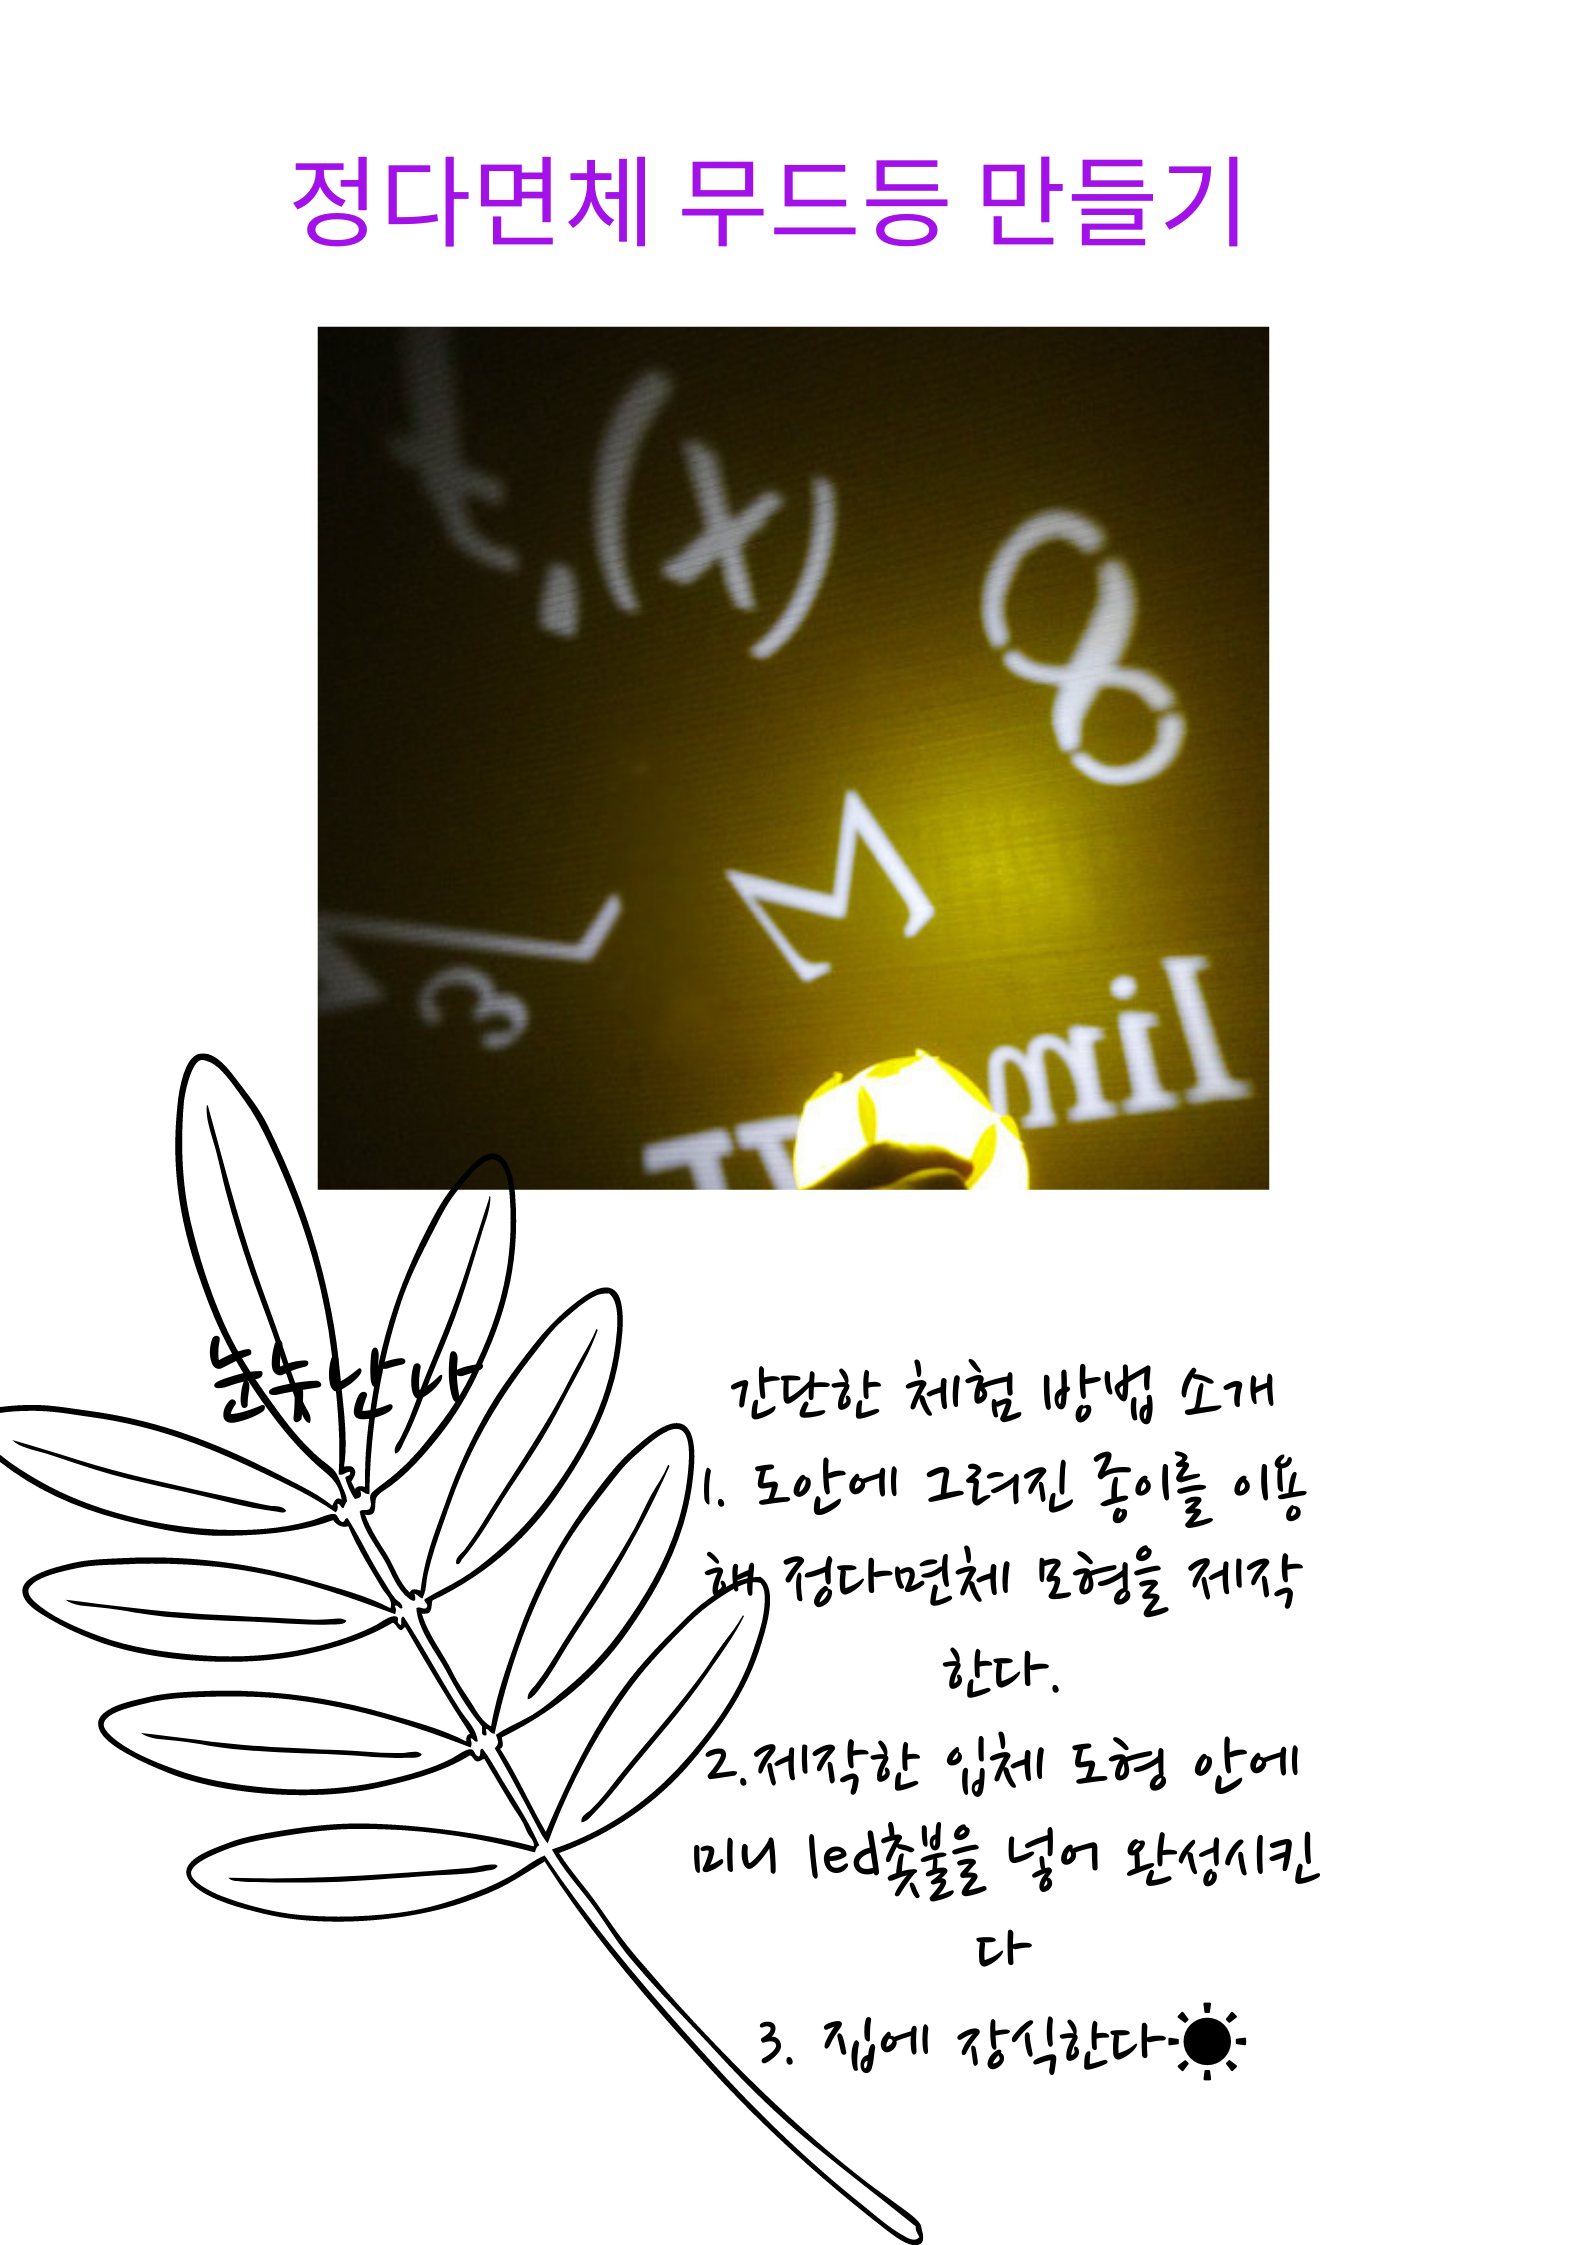 정다면체 무드등 만들기
t,(x)
8
M
3
lim
눈눗난나
간단한 체험 방법 소개
1. 도안에 그려진 종이를 이용
해 정다면체 모형을 제작
한다.
2.제작한 입체 도형 안에
미니 led촛불을 넣어 완성시킨
다
3. 집에 장식한다